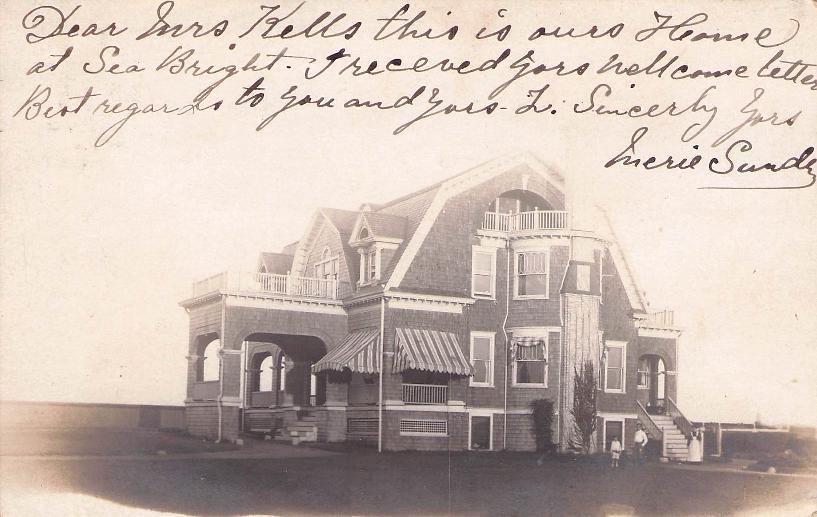 Dear Mrs. Kells this is ours Home
at Sea Bright. I receved yors wellcome letter
Best regards to you and yors - L. Sincerly yors
Merie Sunde